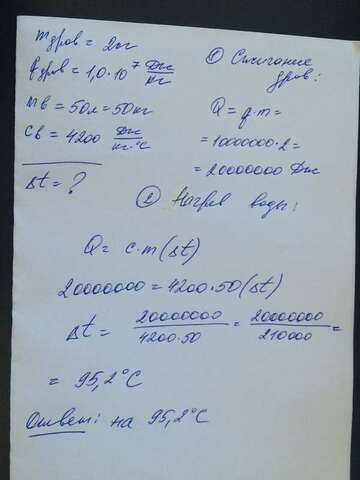 m дров = 2кг
q дров = 1,0·10⁷ Дж/кг
m в = 50л = 50кг
c в = 4200 Дж/кг·°C
Δt = ?
① Сжигание дров:
Q = q·m =
= 1000000·2 =
= 2000000 Дж
② Нагрев воды:
Q = c m (Δt)
20000000 = 4200·50 (Δt)
Δt = 20000000/4200·50 = 20000000/210000 =
= 95,2°C
Ответ: на 95,2°C